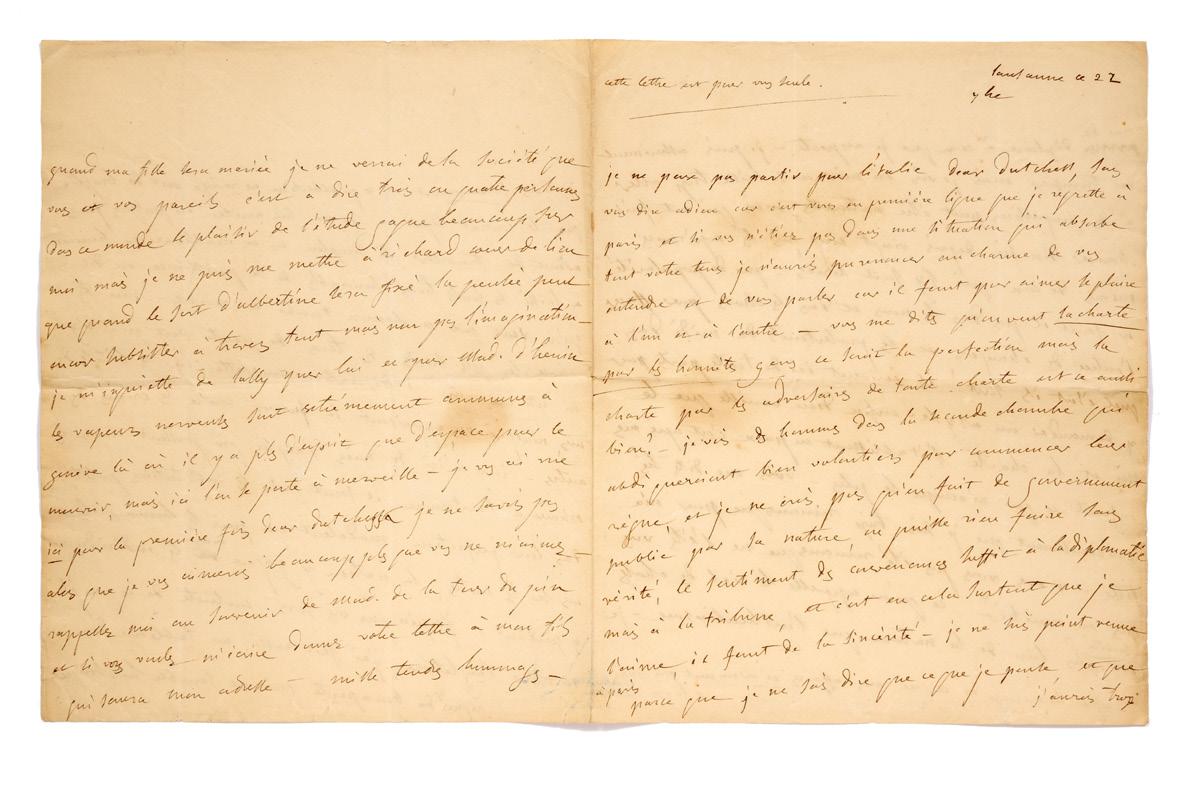 quand ma fille sera mariée je ne verrai de la société que
vous et vos pareils c'est à dire trois ou quatre personnes
dans ce monde le plaisir de l'étude gagne beaucoup sur
moi mais je ne puis me mettre à richard coeur de lion
que quand le sort d'albertine sera fixé la pensée peut
encor subsister à travers tout mais non pas l'imagination –
je m'inquiette de lally pour lui et pour Mad. d'henin
les vapeurs nerveuses sont extrêmement communes à
genève là où il y a plus d'esprit que d'espace pour le
mouvoir, mais ici l'on se porte à merveille – je vous ai vue
ici pour la première fois dear dutchess je ne savois pas
alors que je vous aimerois beaucoup plus que vous ne m'aimez –
rappellez moi au souvenir de Mad. de la tour du pin
et si vous voulez m'écrire donnez votre lettre à mon fils
qui saura mon adresse – mille tendres hommages –
cette lettre est pour vous seule.
lausanne ce 22
7bre
je ne peux pas partir pour l'italie dear dutchess, sans
vous dire adieu car c'est vous en première ligne que je regrette à
paris et si vous n'étiez pas dans une situation qui absorbe
tout votre tems je n'aurois pu renoncer au charme de vous
entendre et de vous parler car il faut pour aimer se plaire
à l'un et à l'autre – vous me dites souvent la charte
par les honnêtes gens ce seroit la perfection mais la
charte par les adversaires de toute charte est ce aussi
bien? – je vois des hommes dans la seconde chambre qui
abdiqueroient bien volontiers pour commencer leur
règne, et je ne crois pas qu'en fait de gouvernement
public par sa nature on puisse rien faire sans
vérité, le sentiment des convenances suffit à la diplomatie
mais à la tribune et c'est en cela surtout que je
l'aime il faut de la sincérité – je ne suis point venue
à paris parce que je ne sais dire que ce que je pense et que
j'aurois trop